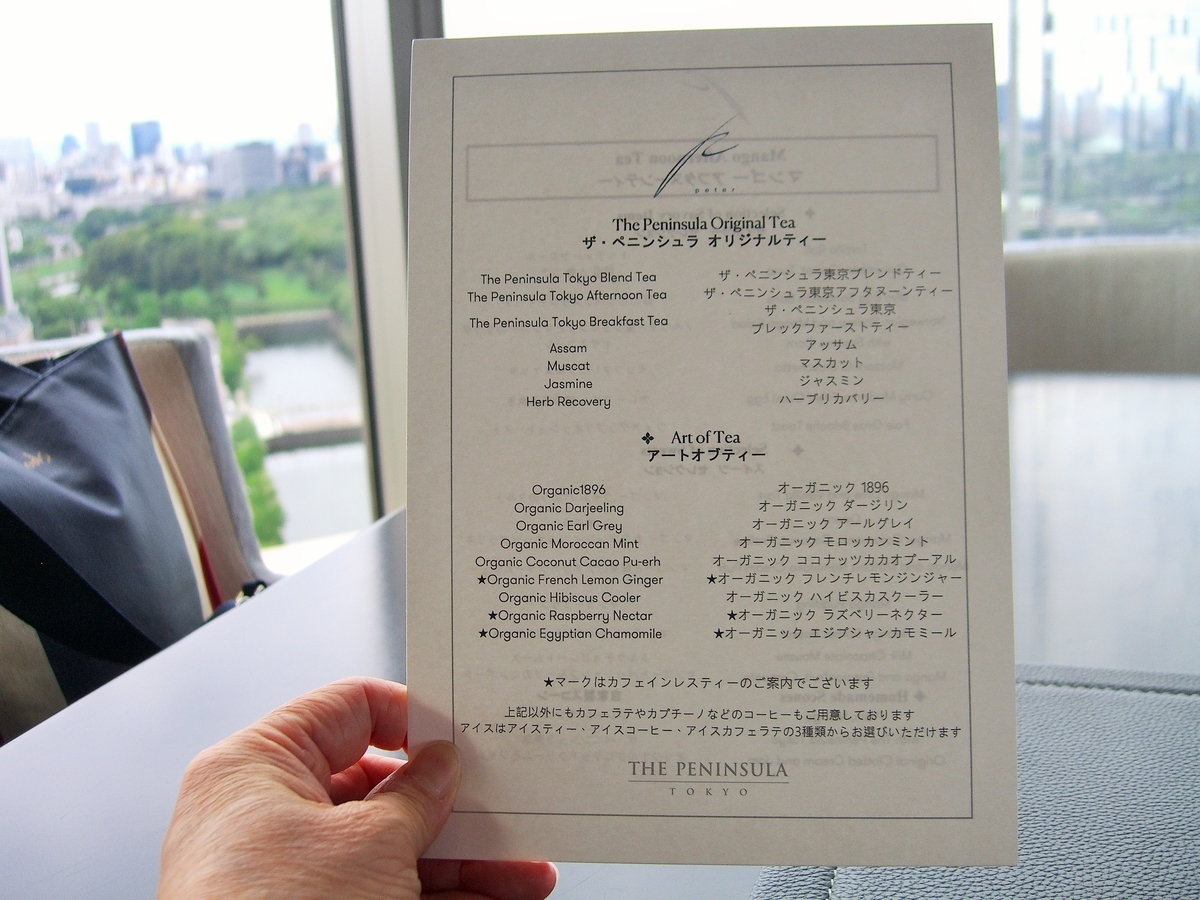 peter
The Peninsula Original Tea
ザ・ペニンシュラ オリジナルティー
The Peninsula Tokyo Blend Tea ザ・ペニンシュラ東京ブレンドティー
The Peninsula Tokyo Afternoon Tea ザ・ペニンシュラ東京アフタヌーンティー
The Peninsula Tokyo Breakfast Tea ザ・ペニンシュラ東京
ブレックファーストティー
Assam アッサム
Muscat マスカット
Jasmine ジャスミン
Herb Recovery ハーブリカバリー
❖ Art of Tea
アートオブティー
Organic1896 オーガニック 1896
Organic Darjeeling オーガニック ダージリン
Organic Earl Grey オーガニック アールグレイ
Organic Moroccan Mint オーガニック モロッカンミント
Organic Coconut Cacao Pu-erh オーガニック ココナッツカカオプーアル
★Organic French Lemon Ginger ★オーガニック フレンチレモンジンジャー
Organic Hibiscus Cooler オーガニック ハイビスカスクーラー
★Organic Raspberry Nectar ★オーガニック ラズベリーネクター
★Organic Egyptian Chamomile ★オーガニック エジプシャンカモミール
★マークはカフェインレスティーのご案内でございます
上記以外にもカフェラテやカプチーノなどのコーヒーもご用意しております
アイスはアイスティー、アイスコーヒー、アイスカフェラテの3種類からお選びいただけます
THE PENINSULA
TOKYO